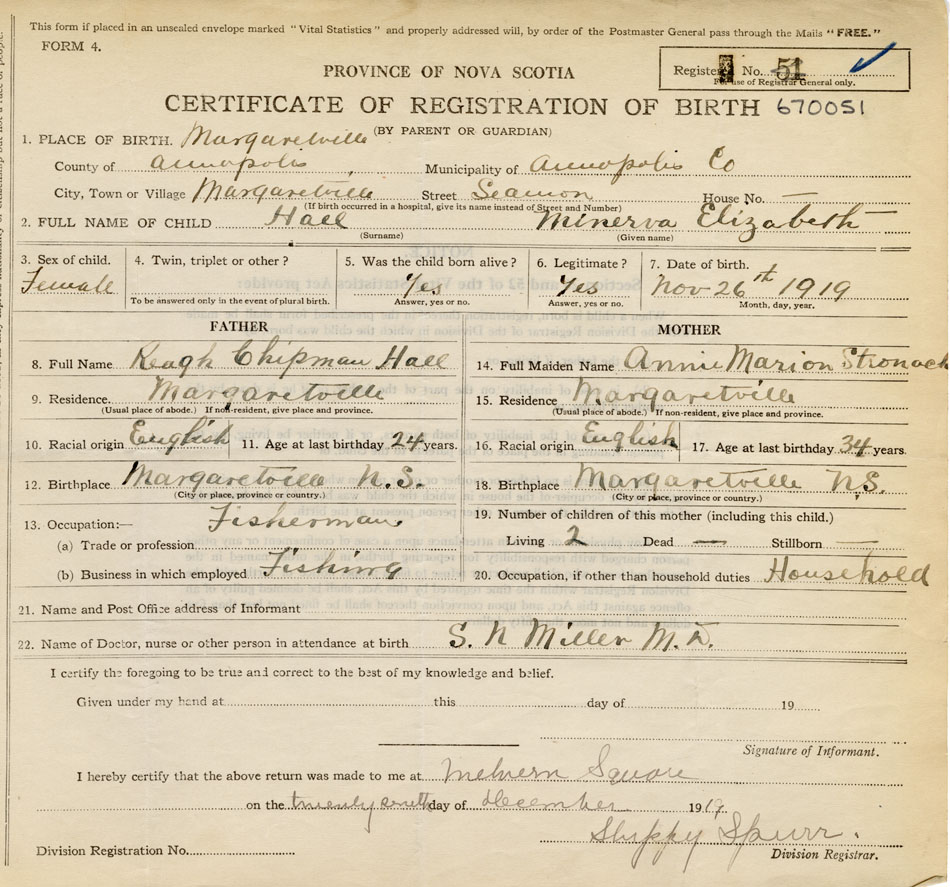 This form if placed in an unsealed envelope marked "Vital Statistics" and properly addressed will, by order of the Postmaster General pass through the Mails "FREE."
FORM 4.
Registered No. 51
For use of Registrar General only.
PROVINCE OF NOVA SCOTIA
CERTIFICATE OF REGISTRATION OF BIRTH 670051
(BY PARENT OR GUARDIAN)
1. PLACE OF BIRTH. Margaretville
County of Annapolis Municipality of Annapolis Co
City, Town or Village Margaretville Street Seaman House No. —
(If birth occurred in a hospital, give its name instead of Street and Number)
2. FULL NAME OF CHILD Hall Minerva Elizabeth
(Surname) (Given name)
3. Sex of child. 4. Twin, triplet or other? 5. Was the child born alive? 6. Legitimate? 7. Date of birth.
Female Yes Yes Nov 26th 1919
To be answered only in the event of plural birth. Answer, yes or no. Answer, yes or no. Month, day, year.
FATHER MOTHER
8. Full Name Keagh Chipman Hall 14. Full Maiden Name Annie Marion Stronach
9. Residence. Margaretville 15. Residence Margaretville
(Usual place of abode.) If non-resident, give place and province. (Usual place of abode.) If non-resident, give place and province.
10. Racial origin English 11. Age at last birthday 24 years. 16. Racial origin English 17. Age at last birthday 34 years.
12. Birthplace Margaretville N.S. 18. Birthplace Margaretville N.S.
(City or place, province or country.) (City or place, province or country.)
13. Occupation:— Fisherman 19. Number of children of this mother (including this child.)
(a) Trade or profession Living 2 Dead — Stillborn —
(b) Business in which employed Fishing 20. Occupation, if other than household duties Household
21. Name and Post Office address of Informant
22. Name of Doctor, nurse or other person in attendance at birth S. N Miller M.D.
I certify the foregoing to be true and correct to the best of my knowledge and belief.
Given under my hand at this day of 19
Signature of Informant.
I hereby certify that the above return was made to me at Melvern Square
on the twenty day of December 1919
Spurr.
Division Registration No. Division Registrar.